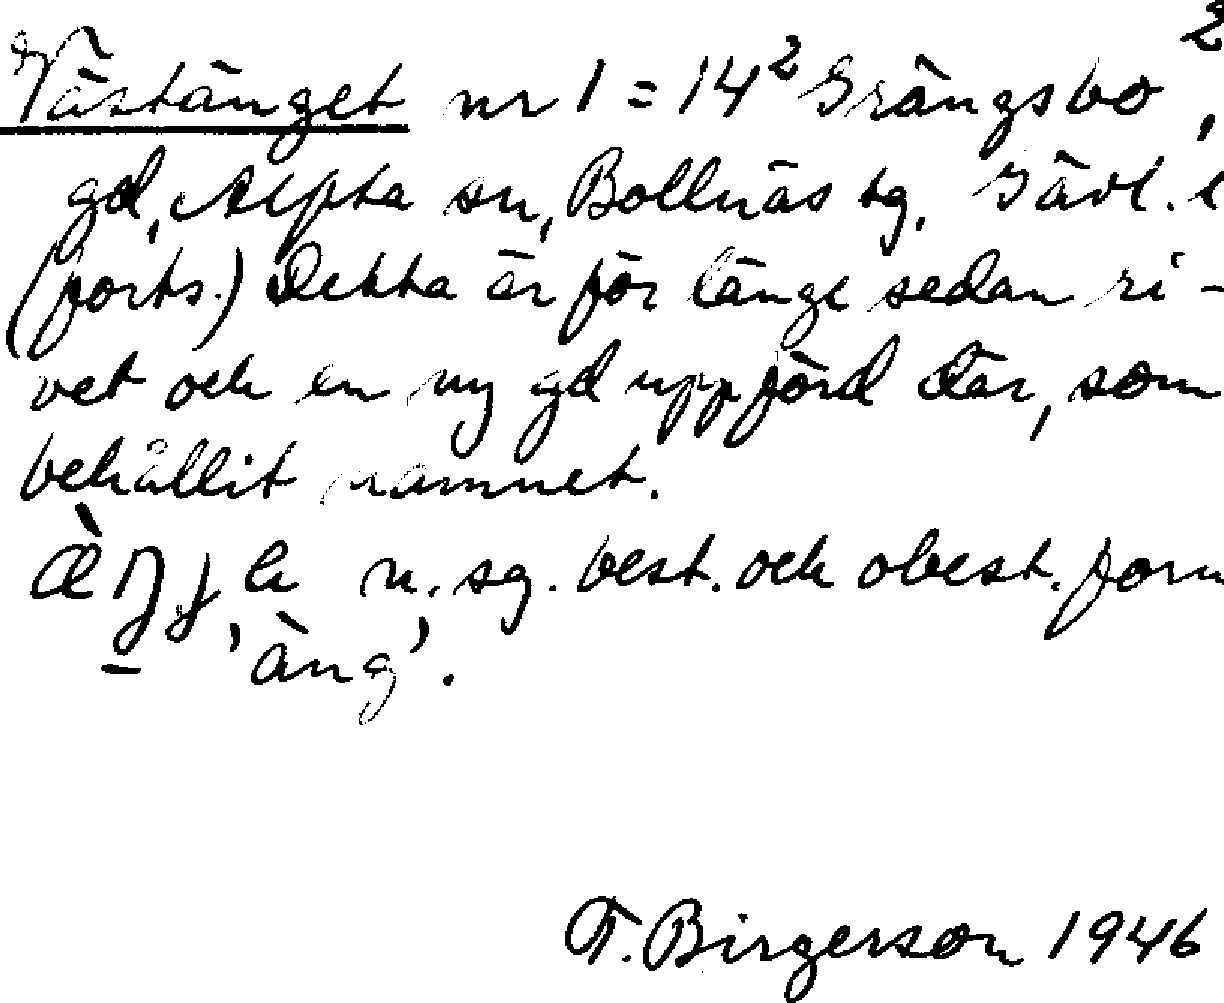 2
Västänget nr 1 = 14² Grängsbo,
gd, Alfta sn, Bollnäs tg. Gävl. l
(forts.) Detta är för länge sedan ri-
vet och en ny gd uppförd där, som
behållit namnet.
n. sg. best. och obest. form
'äng'.
T. Birgerson 1946